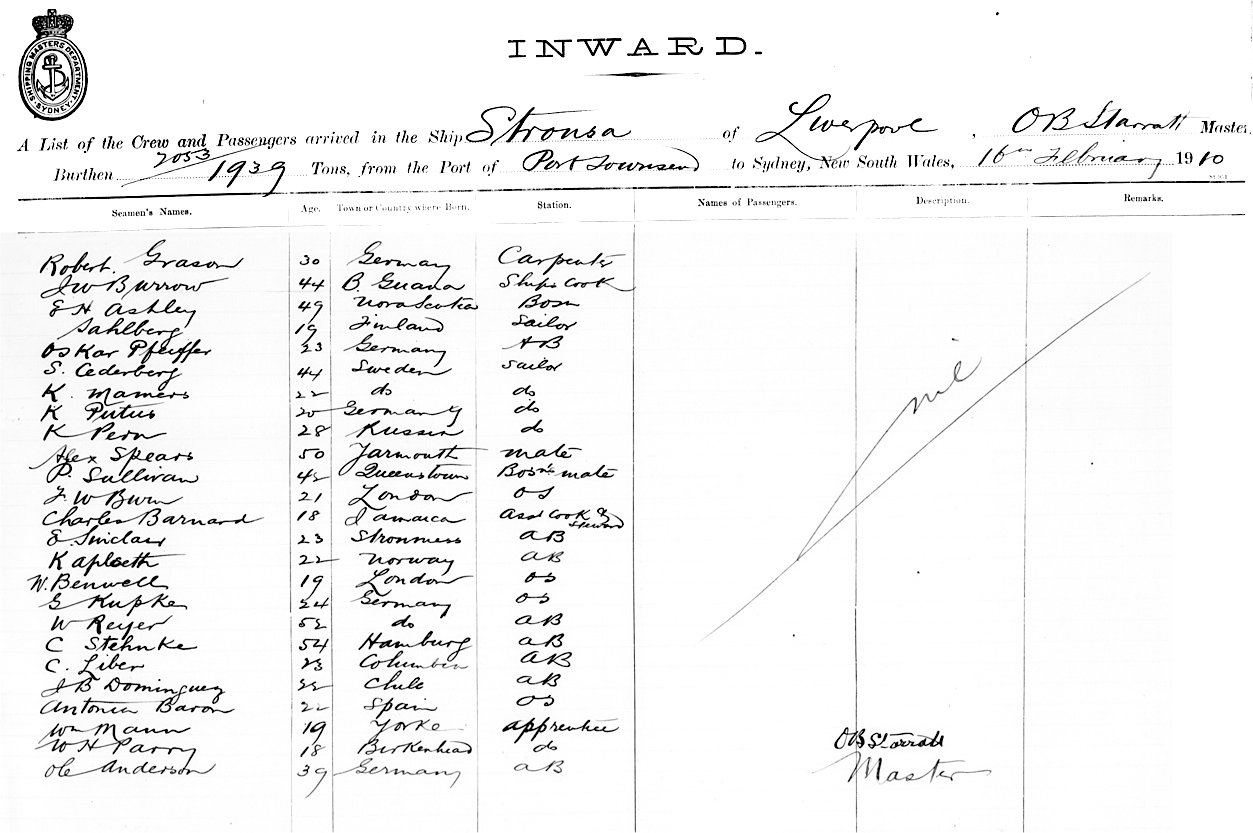 SHIPPING MASTERS DEPARTMENT SYDNEY
INWARD.
A List of the Crew and Passengers arrived in the Ship Stronsa of Liverpool, OB Starratt Master,
2053
Burthen 1939 Tons, from the Port of Port Townsend to Sydney, New South Wales, 16th February 1910
Seamen's Names. Age. Town or Country where Born. Station. Names of Passengers. Description. Remarks.
Robert Grason 30 Germany Carpenter
JW Burrow 44 B. Guana Ships Cook
EH Ashley 49 Nova Scotia Bosn
Sahlberg 19 Finland Sailor
Oskar Pfeiffer 23 Germany AB
S. Cederberg 44 Sweden Sailor
K. Mamers 22 do do
K Putus 20 Germany do
K Pern 28 Russia do
Alex Spears 50 Yarmouth mate
P. Sullivan 42 Queenstown Bosns mate
F. W Burn 21 London OS
Charles Barnard 18 Jamaica Asst Cook &
Steward
E. Sinclair 23 Stromness AB
K aploeth 22 Norway AB
W. Benwell 19 London OS
G Kupke 24 Germany OS
W Reyer 52 do AB
C Stehnke 54 Hamburg AB
C. Liber 23 Columbia AB
JB Dominguez 22 Chile AB
Antonia Baron 22 Spain OS
Wm Mann 19 Yorke apprentice
WH Parry 18 Birkenhead do
Ole Anderson 39 Germany AB
nil
OB Starratt
Master